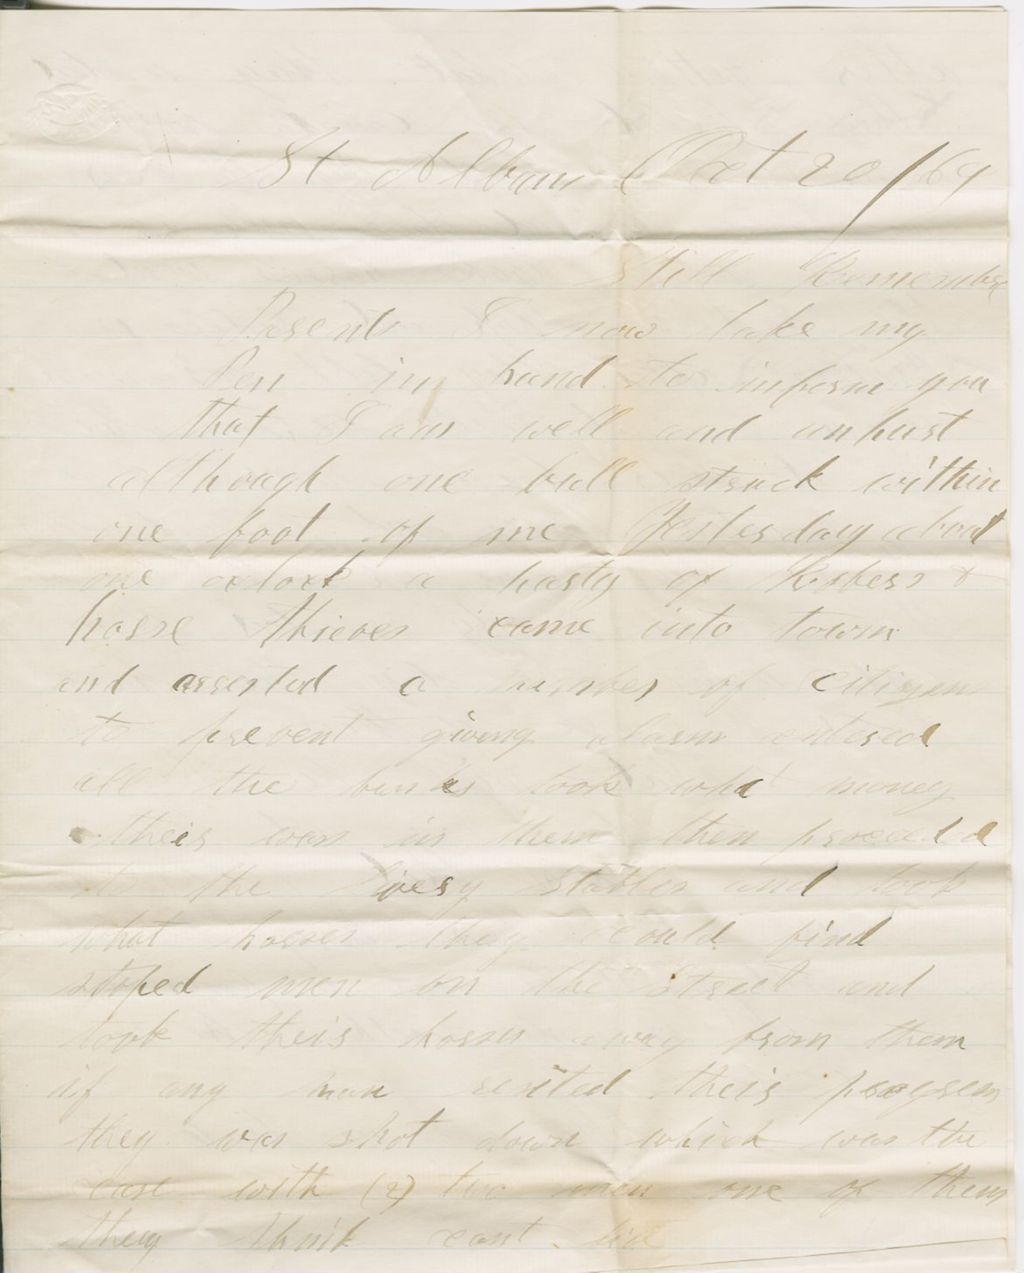 St Albans Oct 20/64
Still Remember
Parents I now take my
Pen in hand to inform you
that I am well and unhurt
although one ball struck within
one foot of me Yesterday about
one oclock a party of Robbers &
horse thieves came into town
and arrested a number of citizens
to prevent giving alarm entered
all the banks took what money
their was in them then proceded
to the livery stables and took
what horses they could find
stoped men on the street and
took their horses away from them
if any man resited their progress
they was shot down which was the
case with (2) two men one of them
they think cant live